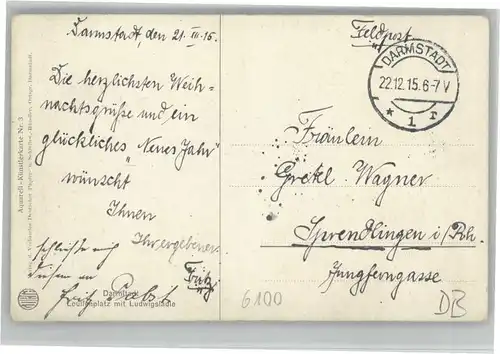 Darmstadt, den 21. III. 15.
Die herzlichsten Weih-
nachtsgrüße und ein
glückliches „Neues Jahr"
wünscht
Ihnen
Ihr ergebener
Fritz
schließe mich
diesen an
Fritz Pabst
Darmstadt
Louisenplatz mit Ludwigssäule
Aquarell-Künstlerkarte Nr. 3
Feldpost
DARMSTADT
22.12.15.6-7 V
* 1 r
Fräulein
Gretel Wagner
Sprendlingen i/Rh.
Jungferngasse
6100
DB